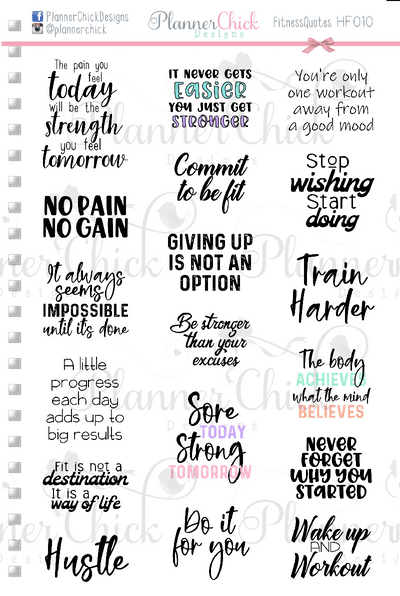 PlannerChickDesigns
@plannerchick
PlannerChick
Designs
FitnessQuotes HF010
The pain you
feel
today
will be the
strength
you feel
tomorrow
NO PAIN
NO GAIN
It always
seems
IMPOSSIBLE
until it's done
A little
progress
each day
adds up to
big results
Fit is not a
destination
It is a
way of life
Hustle
IT NEVER GETS
EASIER
YOU JUST GET
STRONGER
Commit
to be fit
GIVING UP
IS NOT AN
OPTION
Be stronger
than your
excuses
Sore
TODAY
Strong
TOMORROW
Do it
for you
You're only
one workout
away from
a good mood
Stop
wishing
Start
doing
Train
Harder
The body
ACHIEVES
what the mind
BELIEVES
NEVER
FORGET
WHY YOU
STARTED
Wake up
AND
Workout
PlannerChick
Designs